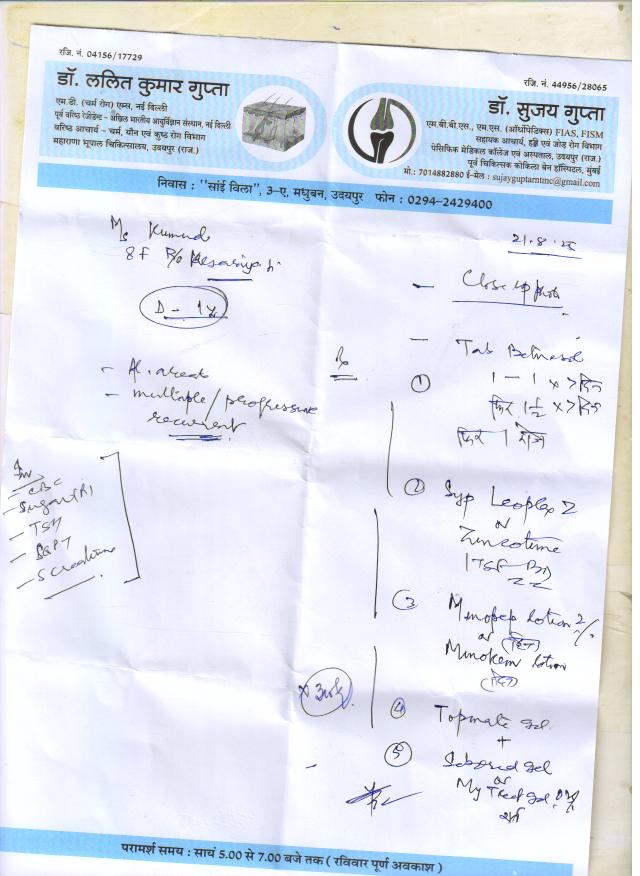 रजि. नं. 04156/17729
डॉ. ललित कुमार गुप्ता
एम.डी. (चर्म रोग) एम्स, नई दिल्ली
पूर्व वरिष्ठ रेजीडेन्ट - अखिल भारतीय आयुर्विज्ञान संस्थान, नई दिल्ली
वरिष्ठ आचार्य - चर्म, यौन एवं कुष्ठ रोग विभाग
महाराणा भूपाल चिकित्सालय, उदयपुर (राज.)
रजि. नं. 44956/28065
डॉ. सुजय गुप्ता
एम.बी.बी.एस., एम.एस. (ऑर्थोपेडिक्स) FIAS, FISM
सहायक आचार्य, हड्डी एवं जोड़ रोग विभाग
पेसिफिक मेडिकल कॉलेज एवं अस्पताल, उदयपुर (राज.)
पूर्व चिकित्सक कोकिला बेन हॉस्पिटल, मुंबई
मो.: 7014882880 ई-मेल : sujayguptarntmc@gmail.com
निवास : "सांई विला", 3-ए, मधुबन, उदयपुर फोन : 0294-2429400
Ms Kumud
8 F R/o Kesariya ji
D - 1 y
- Al. areata
- multiple/progressive
recurrent
Inv
- CBC
- Sugar (R)
- TSH
- SGPT
- S creatinine
21.8.25
- Close up photo
Rx
- Tab Betnesol
① 1 - 1 x > दिन
फिर 1 1/2 x > दिन
फिर 1 रोज
② Syp
or
1 TSF BD
③ lotion 2%
or (दिन)
lotion
(दिन)
④ Topmate gel
+
⑤ gel
or
gel
परामर्श समय : सायं 5.00 से 7.00 बजे तक ( रविवार पूर्ण अवकाश )